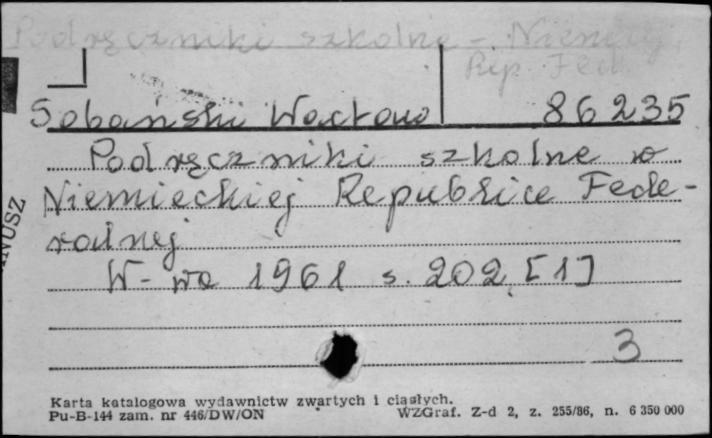 Podręczniki szkolne - Niemiecka
Rep. Fed.
Sobański Wacław 86235
Podręczniki szkolne w
Niemieckiej Republice Fede-
ralnej
W-wa 1961 s. 202, [1]
3
NUSZ
Karta katalogowa wydawnictw zwartych i ciągłych.
Pu-B-144 zam. nr 446/DW/ON WZGraf. Z-d 2, z. 255/86, n. 6 350 000